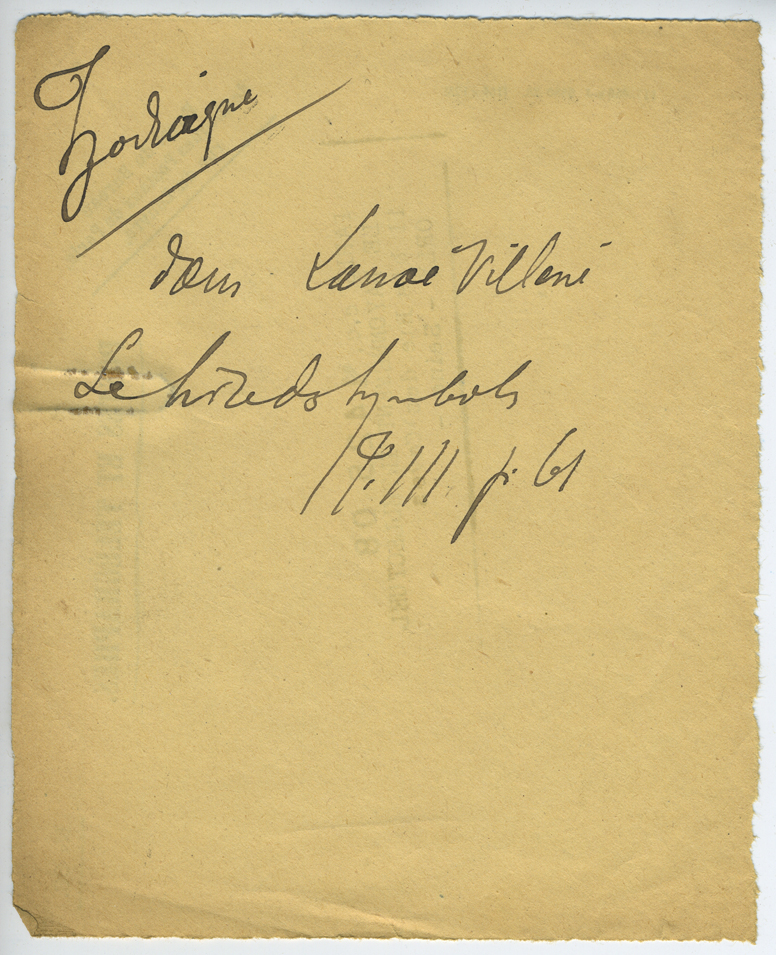 Zodiaque
dans Lanoé Villène
Le livre des symboles
T. III p. 61